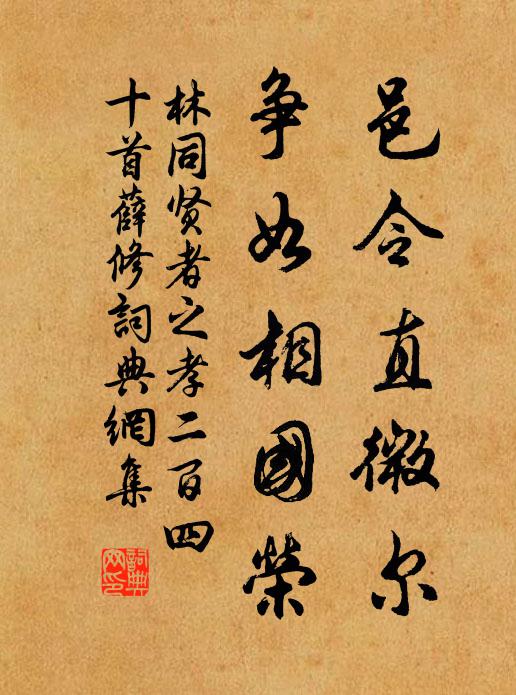 邑令直微尔
争如相國榮
林同贤者之孝二百四
十首薛修詞典網集
詞典网印